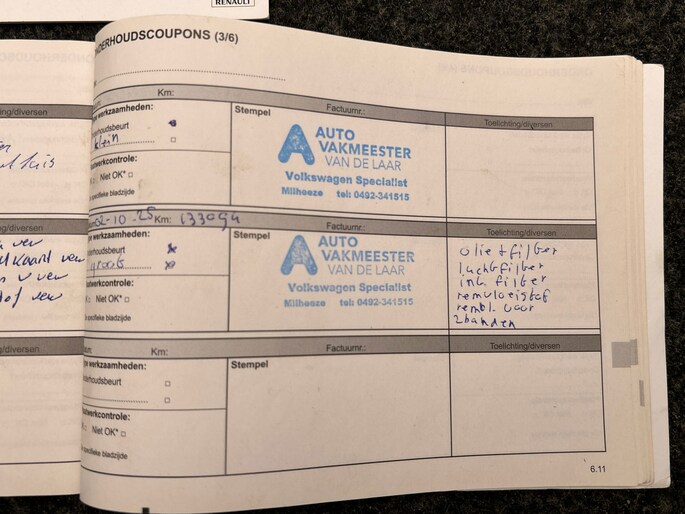 RENAULT
ONDERHOUDSCOUPONS (3/6)
Km:
werkzaamheden:
onderhoudsbeurt
klein
Niet OK*
specifieke bladzijde
Stempel
Factuurnr.:
AUTO
VAKMEESTER
VAN DE LAAR
Volkswagen Specialist
Milheeze tel: 0492-341515
Toelichting/diversen
02-10-25 Km: 133094
werkzaamheden:
onderhoudsbeurt
groot
Niet OK*
specifieke bladzijde
Stempel
Factuurnr.:
AUTO
VAKMEESTER
VAN DE LAAR
Volkswagen Specialist
Milheeze tel: 0492-341515
Toelichting/diversen
olie + filter
luchtfilter
int filter
remvloeistof
rembl. voor
2banden
Km:
werkzaamheden:
onderhoudsbeurt
Niet OK*
specifieke bladzijde
Stempel
Factuurnr.:
Toelichting/diversen
6.11